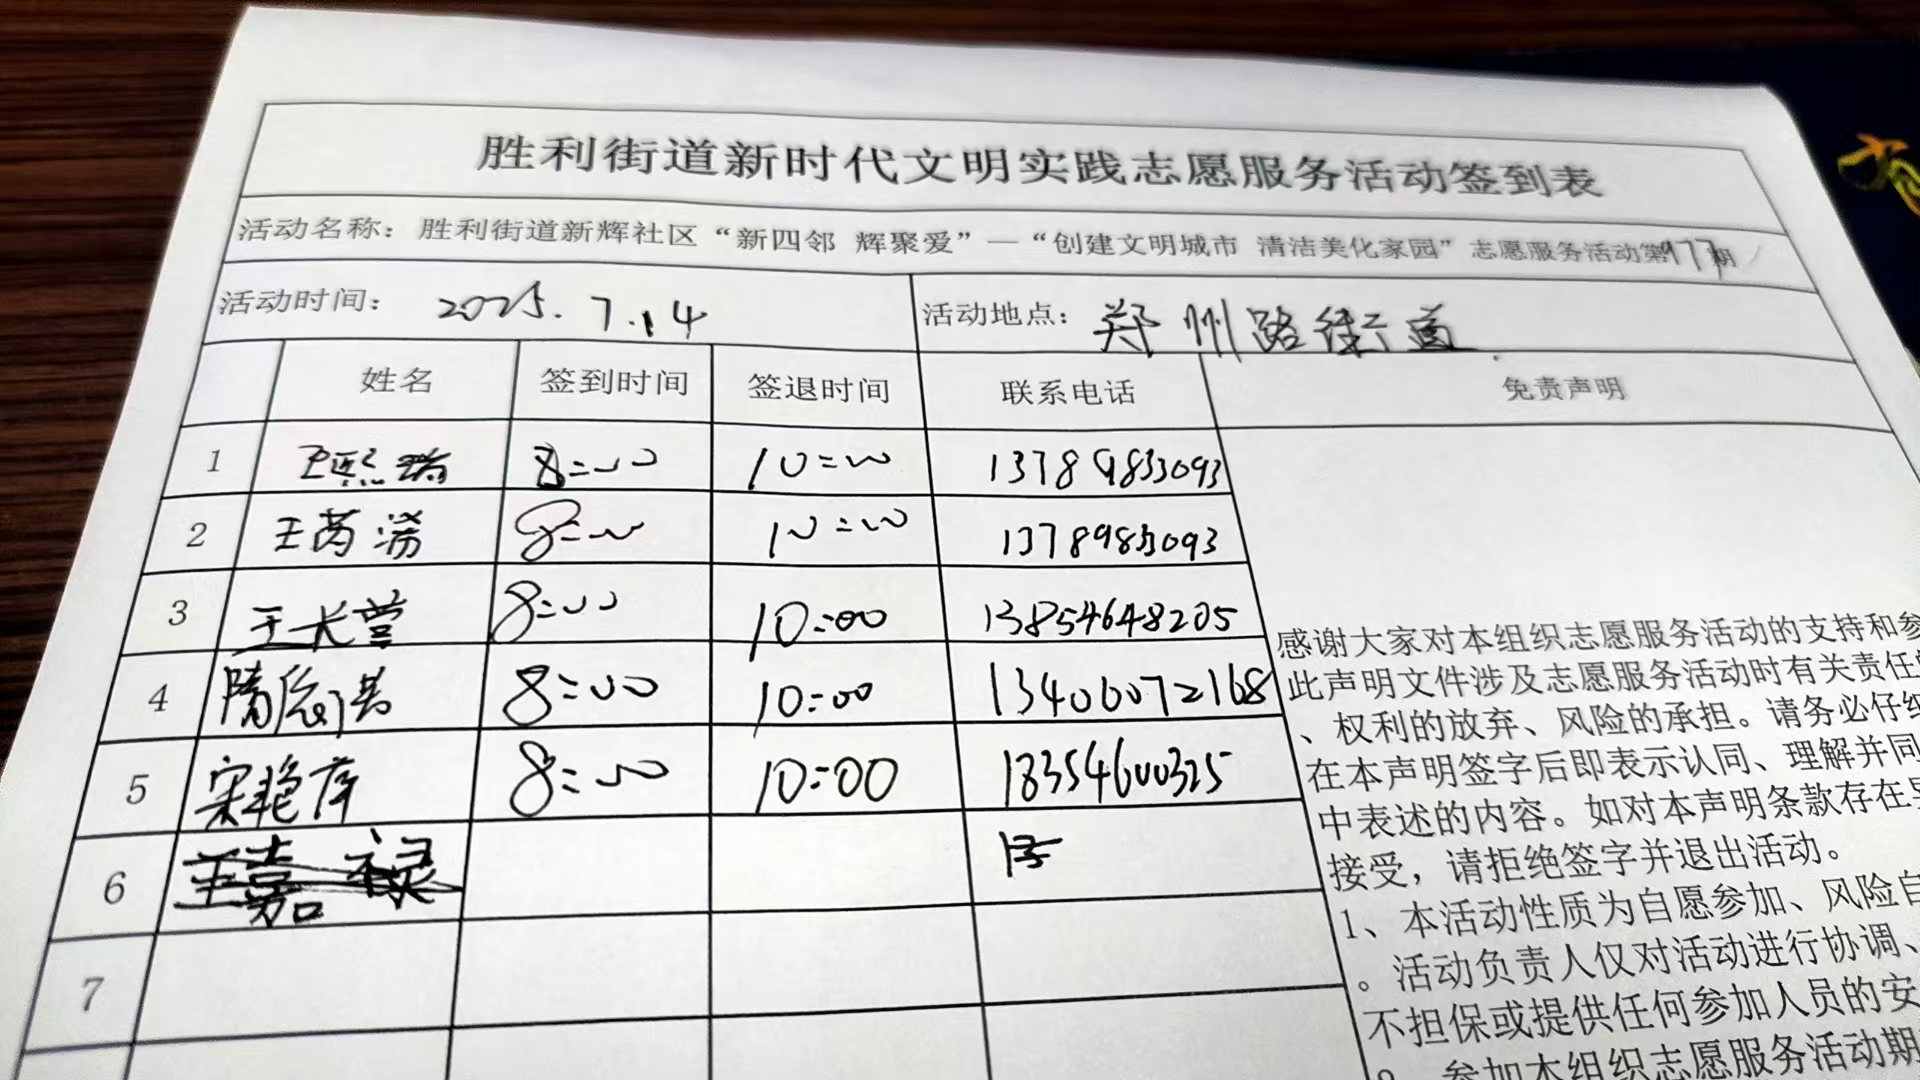 胜利街道新时代文明实践志愿服务活动签到表
活动名称：胜利街道新辉社区“新四邻 辉聚爱”—“创建文明城市 清洁美化家园”志愿服务活动第977期
活动时间： 2025.7.14 活动地点： 郑州路街道
姓名 签到时间 签退时间 联系电话 免责声明
1 王熙瑞 8:00 10:00 13789833093
2 王芮涵 8:00 10:00 13789833093
3 王长营 8:00 10:00 13854648205
4 隋 8:00 10:00 13406072168
5 宋艳萍 8:00 10:00 18354600325
6 王嘉禄
7
感谢大家对本组织志愿服务活动的支持和参
此声明文件涉及志愿服务活动时有关责任的
、权利的放弃、风险的承担。请务必仔细
在本声明签字后即表示认同、理解并同
中表述的内容。如对本声明条款存在异
接受，请拒绝签字并退出活动。
1、本活动性质为自愿参加、风险自
。活动负责人仅对活动进行协调、
不担保或提供任何参加人员的安
2、参加本组织志愿服务活动期